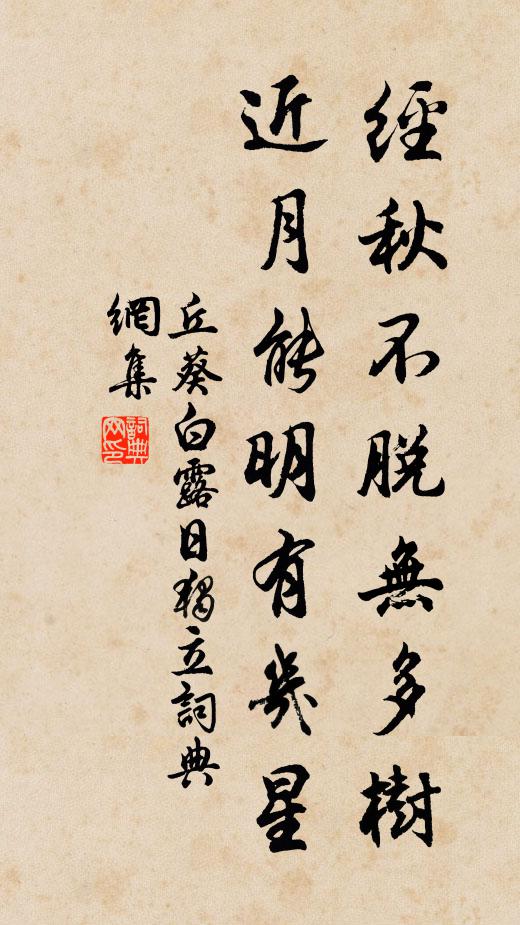 經秋不脫無多樹
近月能明有幾星
丘葵白露日獨立詞典
網集
詞典
网印